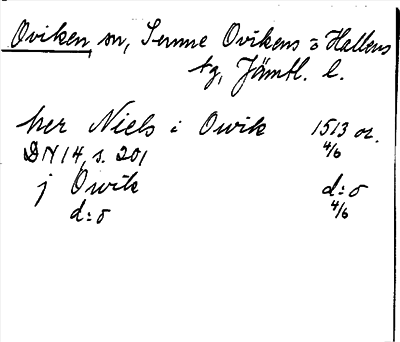 Oviken, sn, Sunne Ovikens o Hallens
tg, Jämtl. l.
her Niels i Owik 1513 or.
DN 14, s. 201 4/6
j Owik d:o
d:o 4/6